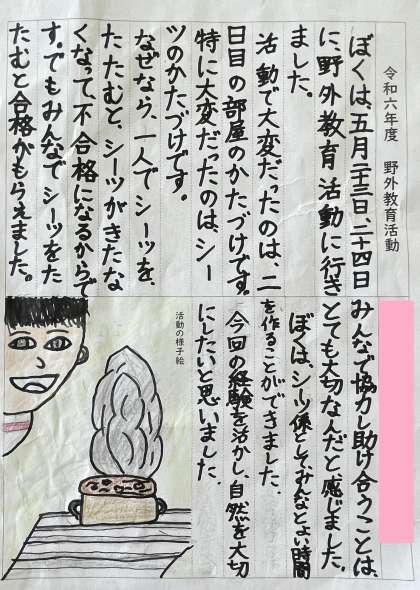 令和六年度　野外教育活動
ぼくは、五月二十三日、二十四日
に、野外教育活動に行き
ました。
活動で大変だったのは、二
日目の部屋のかたづけです。
特に大変だったのは、シー
ツのかたづけです。
なぜなら、一人でシーツを、
たたむと、シーツがきたな
くなって、不合格になるからで
す。でもみんなでシーツをた
たむと合格がもらえました。
みんなで協力し助け合うことは、
とても大切なんだと感じました。
ぼくは、シーツ係としてみんなとよい時間
を作ることができました。
今回の経験を活かし、自然を大切
にしたいと思いました。
活動の様子絵